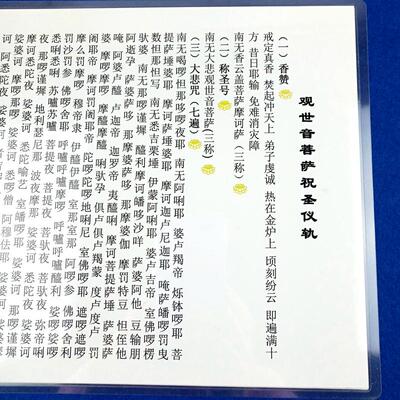 观世音菩萨祝圣仪轨
(一)香赞
戒定真香 焚起冲天上 弟子虔诚 热在金炉上 顷刻纷云 即遍满十
方 昔日耶输 免难消灾障
南无香云盖菩萨摩诃萨(三称)
(二)称圣号
南无大悲观世音菩萨(三称)
(三)大悲咒(七遍)
南无喝啰怛那哆啰夜耶 南无阿唎耶 婆卢羯帝 烁钵啰耶 菩
提萨埵婆耶 摩诃萨埵婆耶 摩诃迦卢尼迦耶 唵萨皤啰罚曳
数怛那怛写 南无悉吉栗埵 伊蒙阿唎耶 婆卢吉帝 室佛啰楞
驮婆 南无那啰谨墀 醯利摩诃皤哆沙咩 萨婆阿他 豆输朋
阿逝孕 萨婆萨哆 那摩婆萨哆 那摩婆伽 摩罚特豆 怛侄他
唵 阿婆卢醯 卢迦帝 迦罗帝 夷醯唎 摩诃菩提萨埵 萨婆萨
婆 摩啰摩啰 摩醯摩醯 唎驮孕 俱卢俱卢羯蒙 度卢度卢 罚
阇耶帝 摩诃罚阇耶帝 陀啰陀啰地唎尼 室佛啰耶 遮啰遮啰
摩么罚摩啰 穆帝隶 伊醯伊醯 室那室那 阿啰参 佛啰舍利
罚沙罚参 佛啰舍耶 呼嚧呼嚧摩啰 呼嚧呼嚧醯利 娑啰娑啰
悉唎悉唎 苏嚧苏嚧 菩提夜 菩提夜 菩驮夜 菩驮夜 弥帝唎
夜 那啰谨墀 地利瑟尼那 波夜摩那 娑婆诃 悉陀夜 娑婆诃
摩诃悉陀夜 娑婆诃 悉陀喻艺 室皤啰耶 娑婆诃 那啰谨墀
娑婆诃 摩啰那啰 娑婆诃 悉啰僧 阿穆佉耶 娑婆